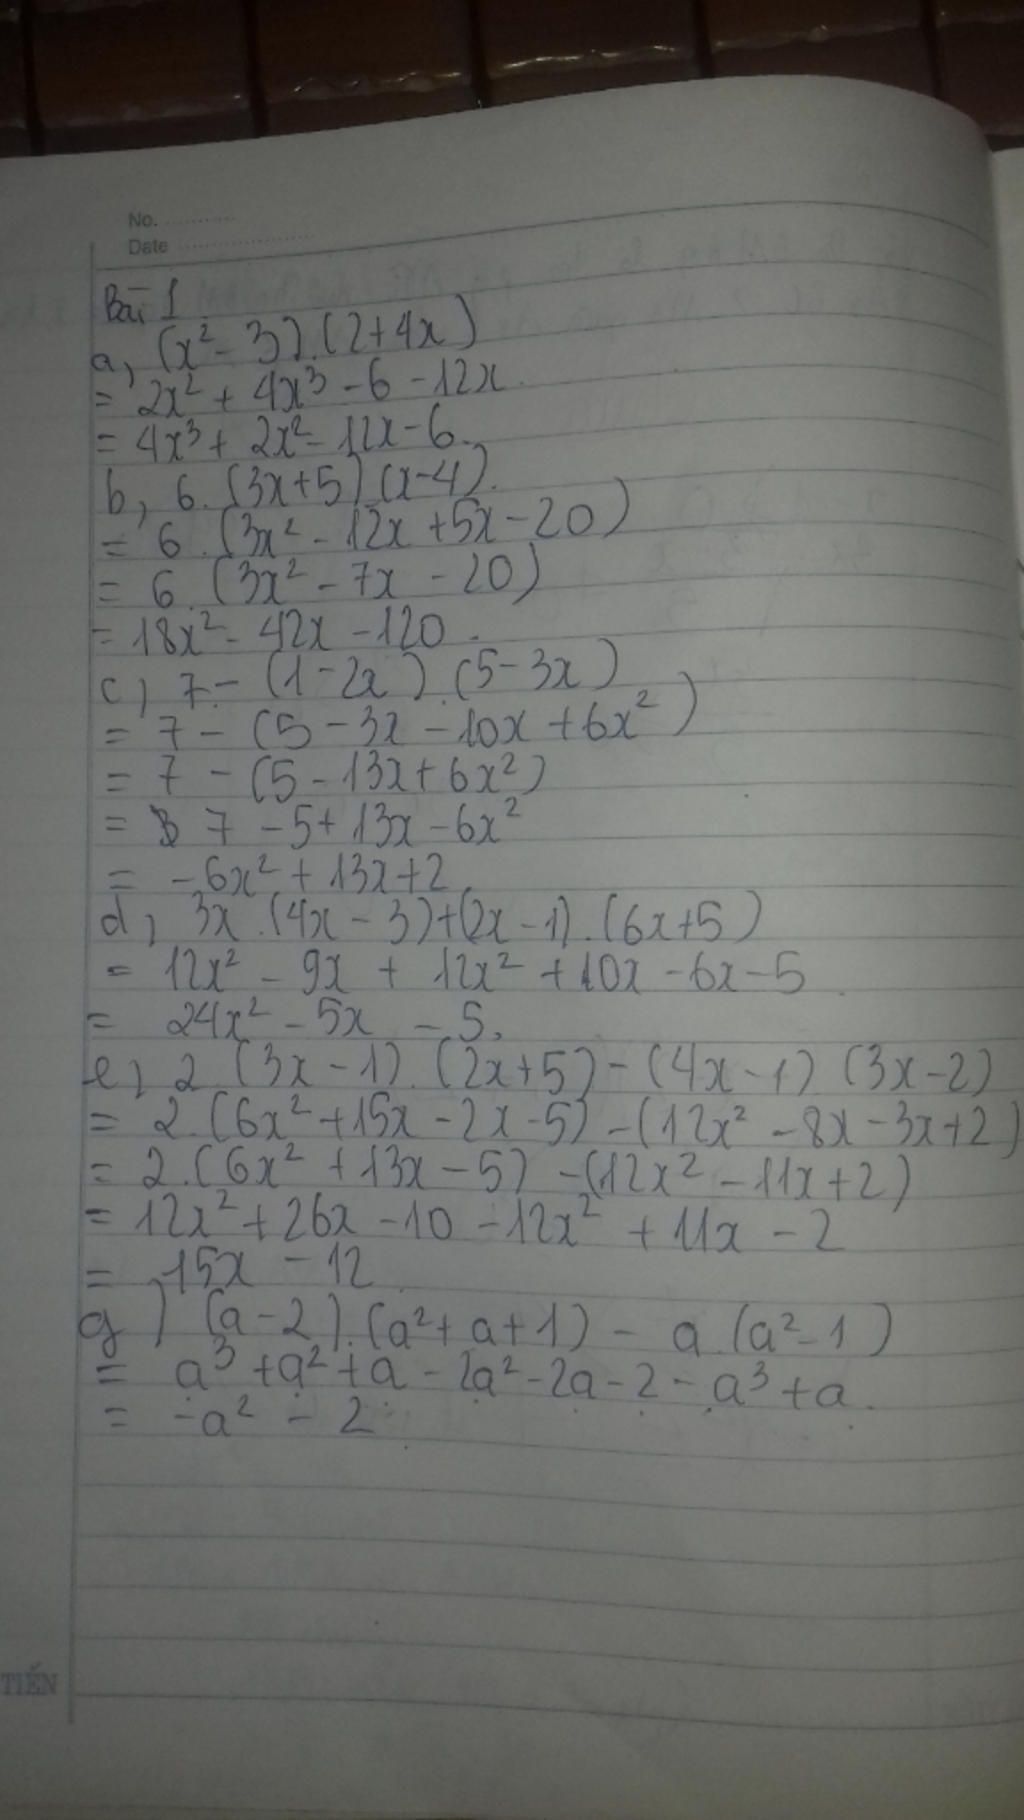 No. ............
Date ........................
Bài 1
a, (x² - 3).(2+4x)
= 2x² + 4x³ - 6 - 12x
= 4x³ + 2x² - 12x - 6.
b, 6.(3x+5).(x-4).
= 6.(3x² - 12x + 5x - 20)
= 6.(3x² - 7x - 20)
= 18x² - 42x - 120.
c, 7 - (1 - 2x).(5 - 3x)
= 7 - (5 - 3x - 10x + 6x²)
= 7 - (5 - 13x + 6x²)
= 7 - 5 + 13x - 6x²
= -6x² + 13x + 2
d, 3x.(4x - 3)+(2x - 1).(6x+5)
= 12x² - 9x + 12x² + 10x - 6x - 5
= 24x² - 5x - 5.
e, 2.(3x - 1).(2x+5) - (4x - 1).(3x - 2)
= 2.(6x² + 15x - 2x - 5) - (12x² - 8x - 3x + 2)
= 2.(6x² + 13x - 5) - (12x² - 11x + 2)
= 12x² + 26x - 10 - 12x² + 11x - 2
= 15x - 12
g) (a - 2).(a² + a + 1) - a.(a² - 1)
= a³ + a² + a - 2a² - 2a - 2 - a³ + a.
= -a² - 2
TIẾN